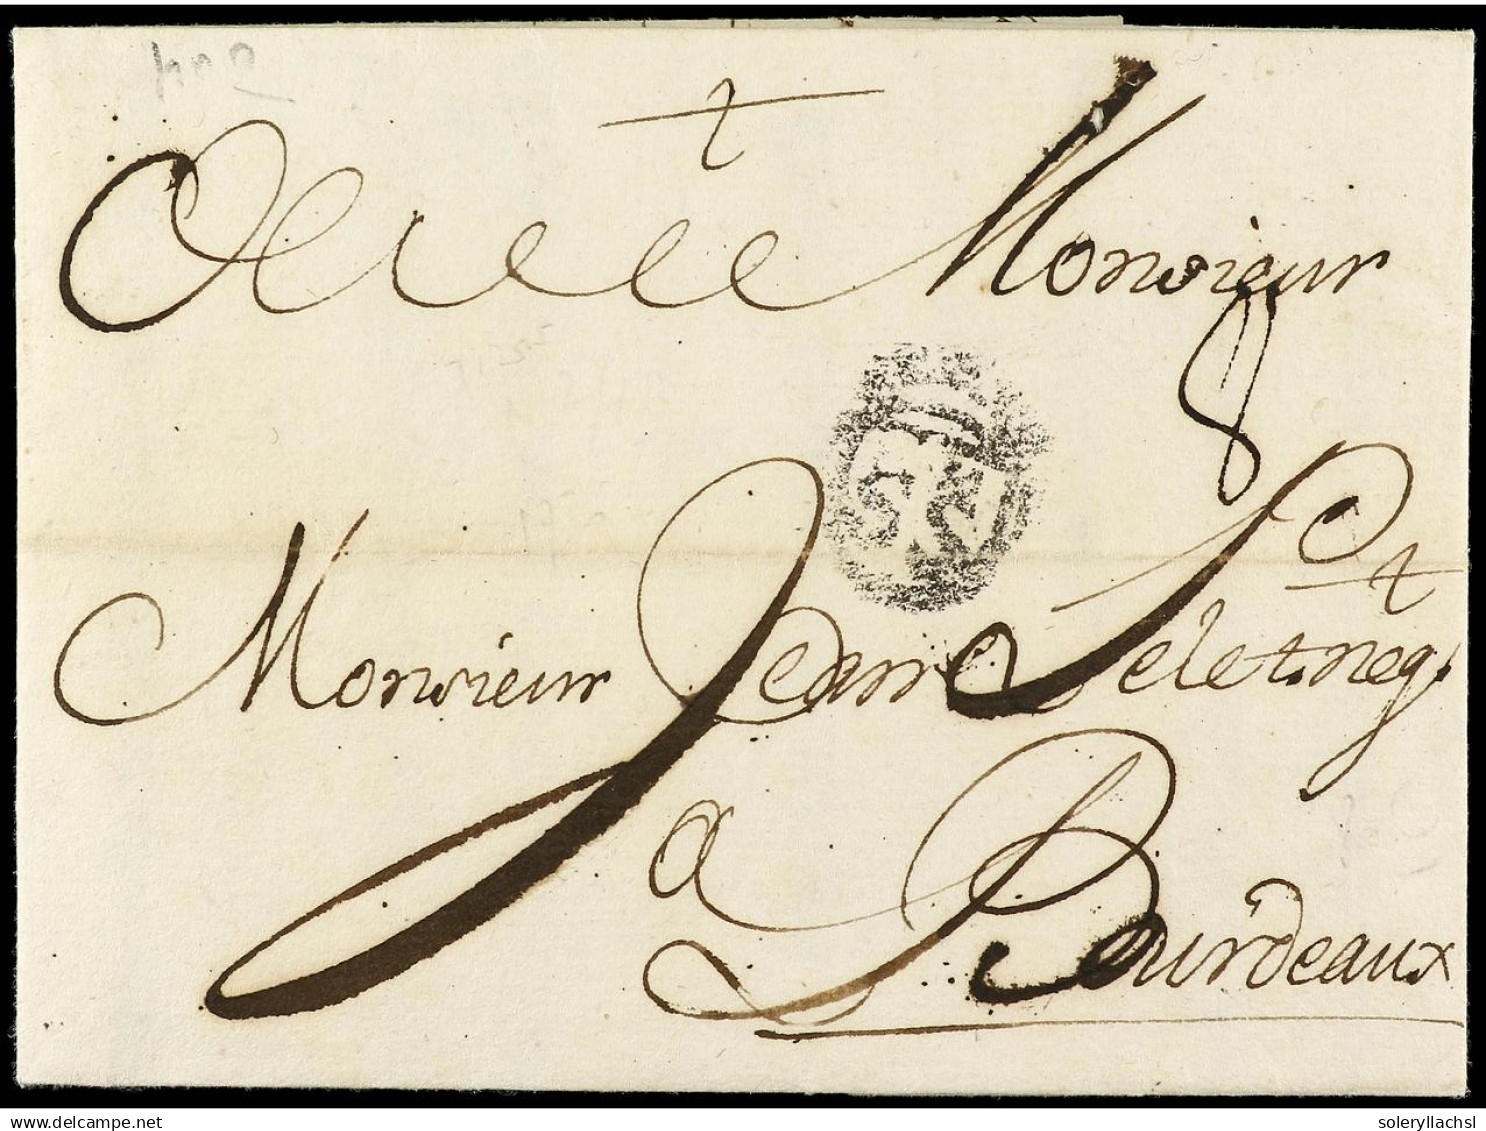 A Monsieur
8
Monsieur Jean Pelet neg.t
a Bourdeaux
delcampe.net
soleryllachsl